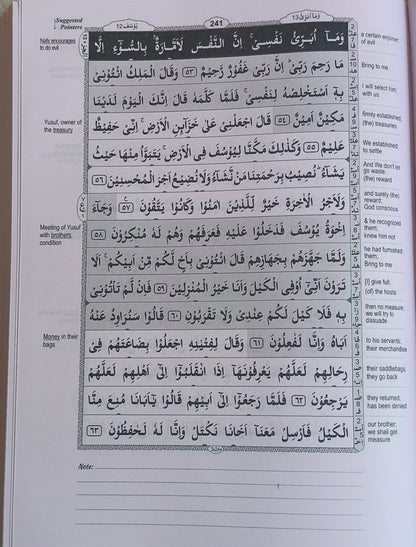 \Suggested
Pointers
يُوْسُف 12
241
وَمَآ اُبَرِّئُ 13
وَمَآ اُبَرِّئُ نَفْسِىْ ۚ اِنَّ النَّفْسَ لَاَمَّارَةٌۢ بِالسُّوْٓءِ اِلَّا
مَا رَحِمَ رَبِّىْ ؕ اِنَّ رَبِّىْ غَفُوْرٌ رَّحِيْمٌ ۝۵۳ وَقَالَ الْمَلِكُ ائْتُوْنِىْ
بِهٖٓ اَسْتَخْلِصْهُ لِنَفْسِىْ ۚ فَلَمَّا كَلَّمَهٗ قَالَ اِنَّكَ الْيَوْمَ لَدَيْنَا
مَكِيْنٌ اَمِيْنٌ ۝۵۴ قَالَ اجْعَلْنِىْ عَلٰى خَزَآئِنِ الْاَرْضِ ۚ اِنِّىْ حَفِيْظٌ
عَلِيْمٌ ۝۵۵ وَكَذٰلِكَ مَكَّنَّا لِيُوْسُفَ فِى الْاَرْضِ ۚ يَتَبَوَّاُ مِنْهَا حَيْثُ
يَشَآءُ ؕ نُصِيْبُ بِرَحْمَتِنَا مَنْ نَّشَآءُ وَلَا نُضِيْعُ اَجْرَ الْمُحْسِنِيْنَ ۝۵۶
وَلَاَجْرُ الْاٰخِرَةِ خَيْرٌ لِّلَّذِيْنَ اٰمَنُوْا وَكَانُوْا يَتَّقُوْنَ ۝۵۷ وَجَآءَ
اِخْوَةُ يُوْسُفَ فَدَخَلُوْا عَلَيْهِ فَعَرَفَهُمْ وَهُمْ لَهٗ مُنْكِرُوْنَ ۝۵۸
وَلَمَّا جَهَّزَهُمْ بِجَهَازِهِمْ قَالَ ائْتُوْنِىْ بِاَخٍ لَّكُمْ مِّنْ اَبِيْكُمْ ۚ اَلَا
تَرَوْنَ اَنِّىْٓ اُوْفِى الْكَيْلَ وَاَنَا خَيْرُ الْمُنْزِلِيْنَ ۝۵۹ فَاِنْ لَّمْ تَاْتُوْنِىْ
بِهٖ فَلَا كَيْلَ لَكُمْ عِنْدِىْ وَلَا تَقْرَبُوْنِ ۝۶۰ قَالُوْا سَنُرَاوِدُ عَنْهُ
اَبَاهُ وَاِنَّا لَفٰعِلُوْنَ ۝۶۱ وَقَالَ لِفِتْيٰنِهِ اجْعَلُوْا بِضَاعَتَهُمْ فِىْ
رِحَالِهِمْ لَعَلَّهُمْ يَعْرِفُوْنَهَآ اِذَا انْقَلَبُوْٓا اِلٰٓى اَهْلِهِمْ لَعَلَّهُمْ
يَرْجِعُوْنَ ۝۶۲ فَلَمَّا رَجَعُوْٓا اِلٰٓى اَبِيْهِمْ قَالُوْا يٰۤاَبَانَا مُنِعَ مِنَّا
الْكَيْلُ فَاَرْسِلْ مَعَنَآ اَخَانَا نَكْتَلْ وَاِنَّا لَهٗ لَحٰفِظُوْنَ ۝۶۳
Nafs encourages
to do evil
Yusuf, owner of
the treasury
Meeting of Yusuf
with brothers;
condition
Money in their
bags
a certain enjoiner
of evil
Bring to me
I will select him;
with us
firmly established;
(the) treasures
We established;
to settle
And We don't let
go waste;
(the) reward
and surely (the)
reward;
God conscious
& he recognized
them;
knew him not
he had furnished
them;
Bring to me
[I] give full;
(of) the hosts
then no measure;
we will try to
dissuade
to his servants;
their merchandise
their saddlebags
they go back
they returned;
has been denied
our brother;
we shall get
measure
Note: